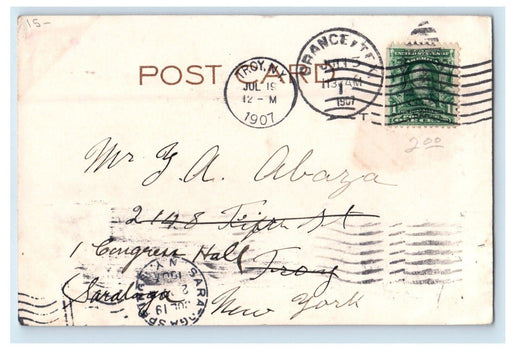 15-
POST CARD
TROY, N.
JUL 19
12-M
1907
ORANGE, TEX
JUL 15
1130AM
1907
2.00
Mr. Y. A. Abaza
2148 Fifth St
1 Congress Hall Troy
Saratoga New York
SARATOGA SPRINGS N.
JUL 19
1907